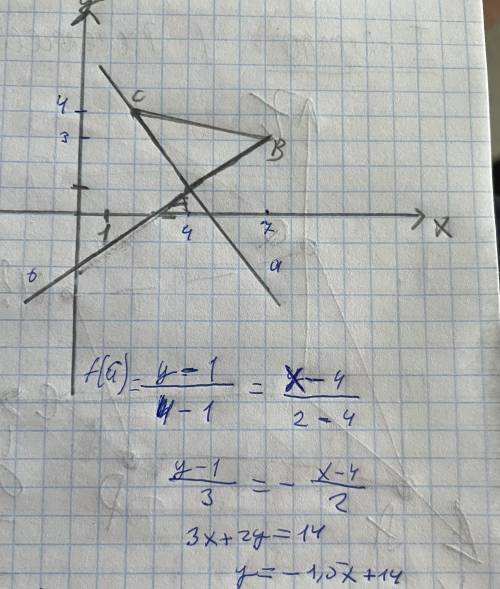 y
C
4
3
B
1
4
7
x
б
a
f(a) = \frac{y-1}{4-1} = \frac{x-4}{2-4}
\frac{y-1}{3} = -\frac{x-4}{2}
3x+2y=14
y=-1,5x+14